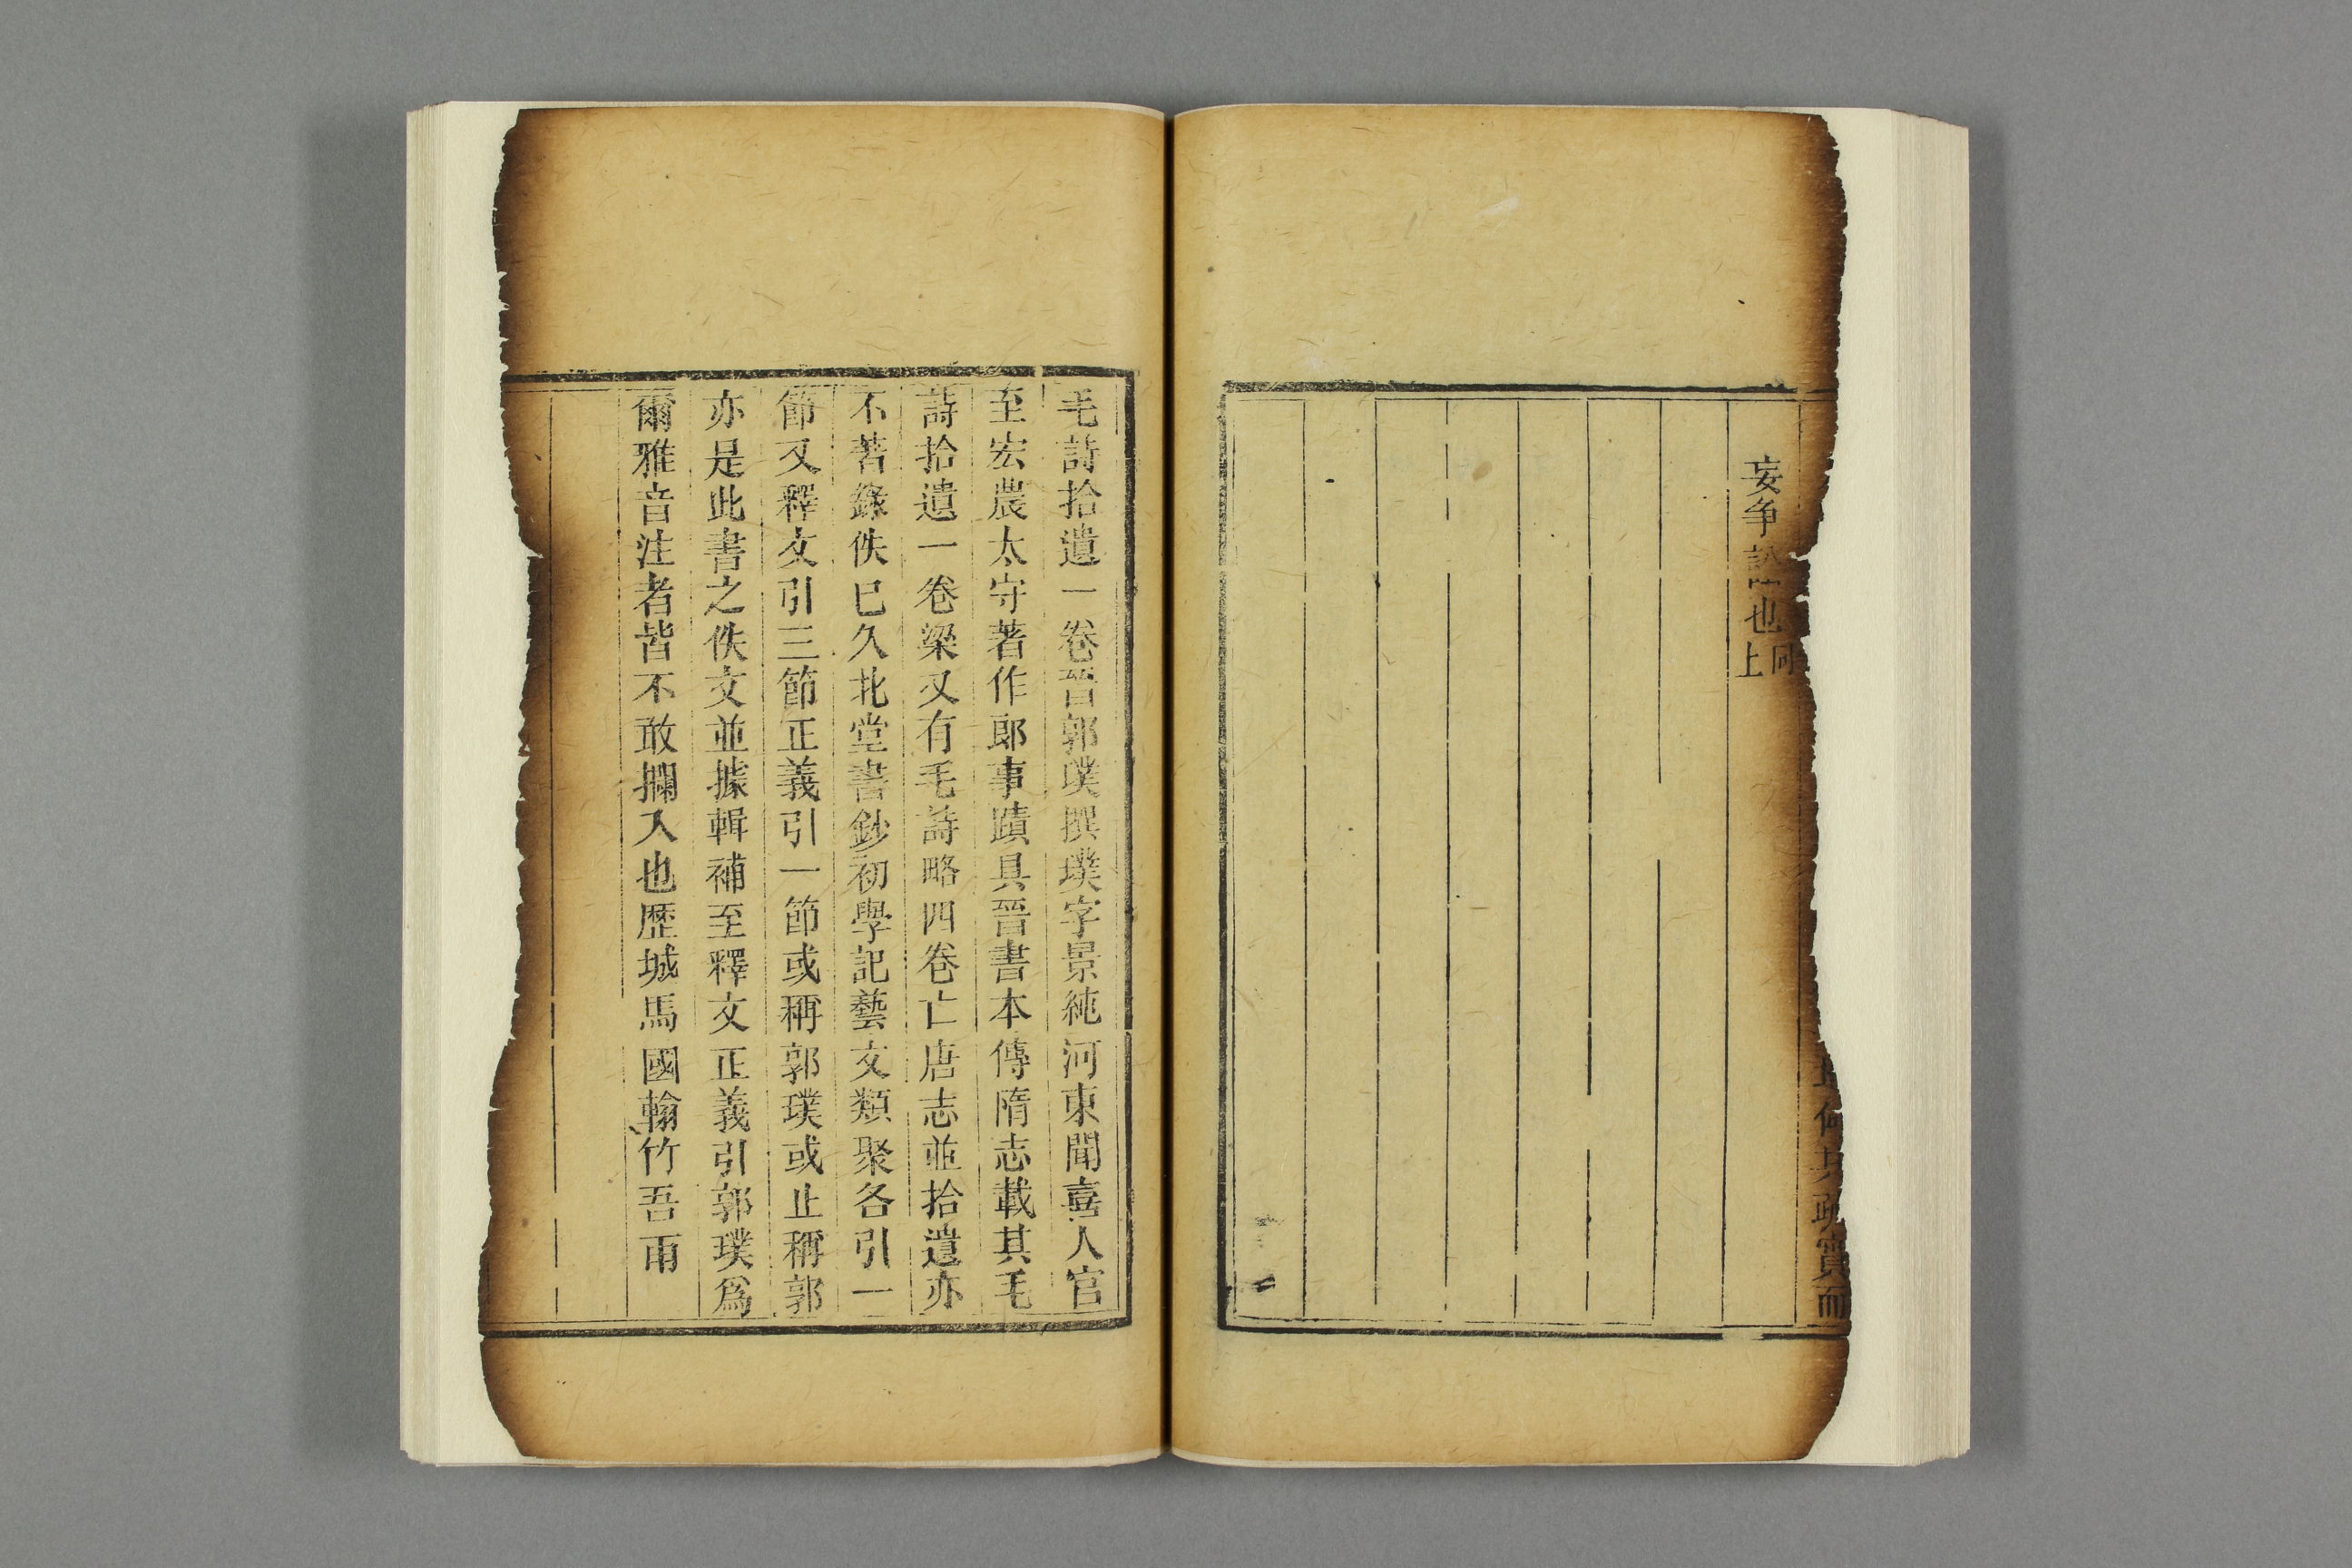 何其疏實而
妄争訟也同上
毛詩拾遺一卷晉郭璞撰璞字景純河東聞喜人官
至宏農太守著作郎事蹟具晉書本傳隋志載其毛
詩拾遺一卷梁又有毛詩略四卷亡唐志並拾遺亦
不著錄佚已久北堂書鈔初學記藝文類聚各引一
節又釋文引三節正義引一節或稱郭璞或止稱郭
亦是此書之佚文並據輯補至釋文正義引郭璞爲
爾雅音注者皆不敢攔入也歷城馬國翰竹吾甫